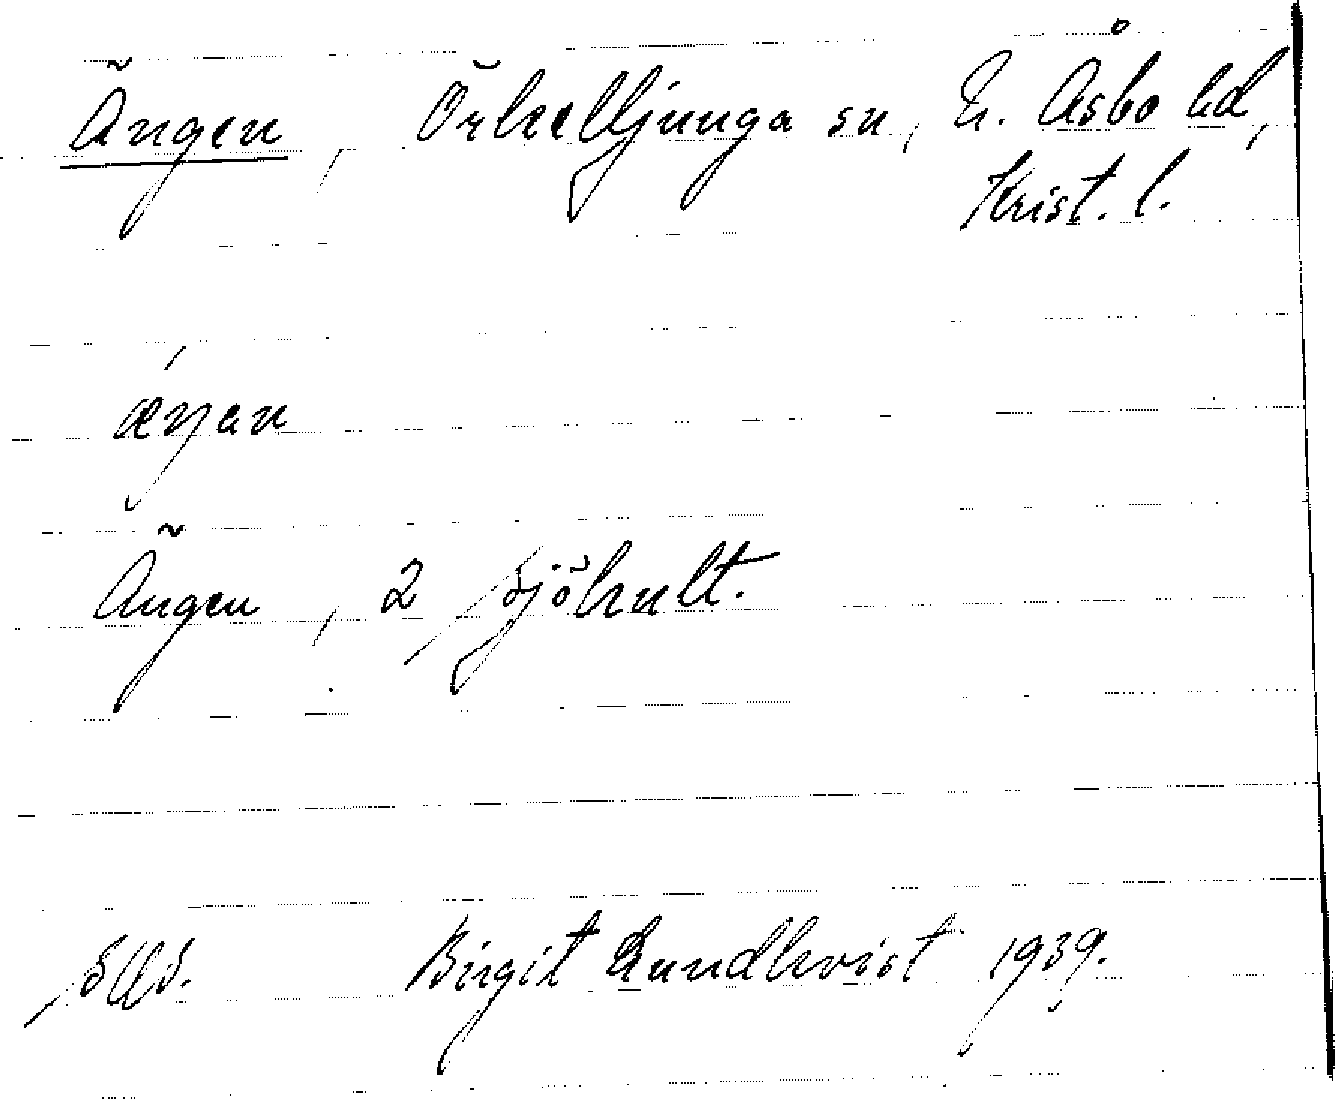 Ängen, Örkelljunga sn, N. Åsbo hd,
Krist. l.
æŋan
Ängen, 2 Sjöhult.
Birgit Lundkvist 1939.